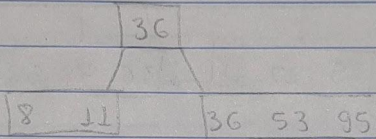 36
8 11 36 53 95